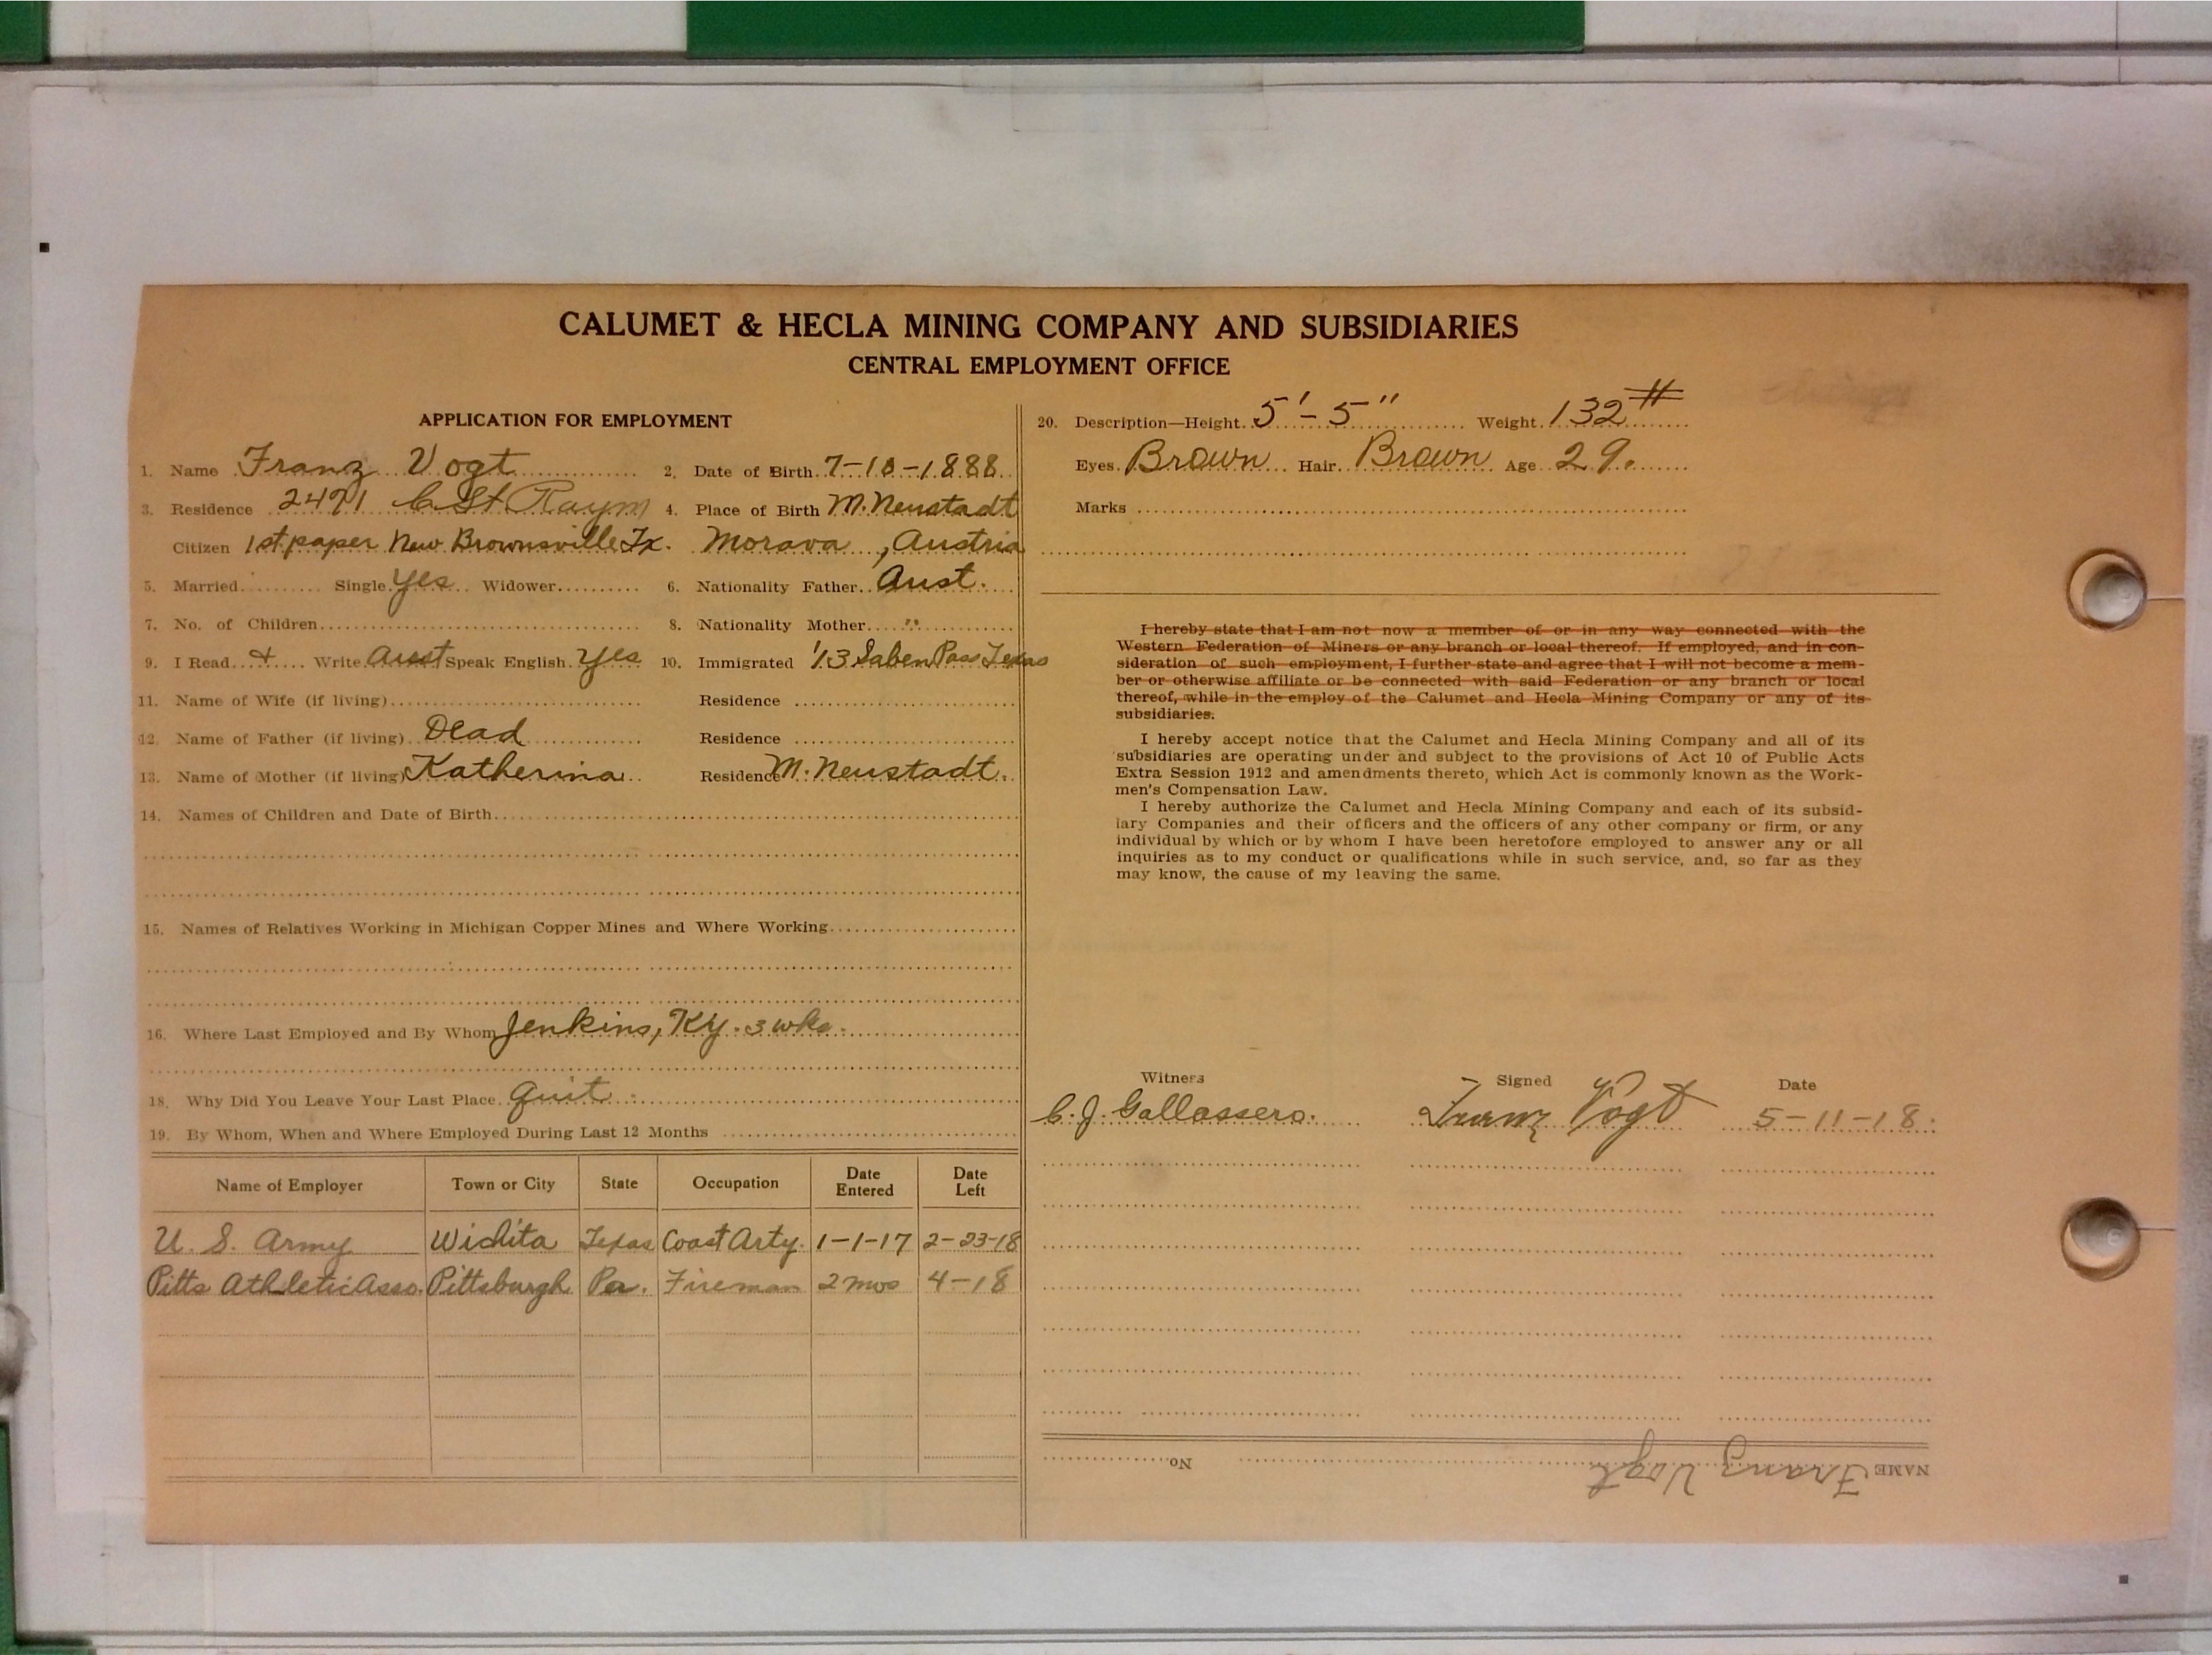 CALUMET & HECLA MINING COMPANY AND SUBSIDIARIES
CENTRAL EMPLOYMENT OFFICE
APPLICATION FOR EMPLOYMENT
1. Name Franz Vogt 2. Date of Birth 7-10-1888
3. Residence 2471 C St Raym 4. Place of Birth M. Neustadt
Citizen 1st paper New Brownsville Tx. Morava, Austria
5. Married Single Yes Widower 6. Nationality Father Aust.
7. No. of Children 8. Nationality Mother "
9. I Read & Write Aust Speak English Yes 10. Immigrated '13 Saben Pass Texas
11. Name of Wife (if living) Residence
12. Name of Father (if living) Dead Residence
13. Name of Mother (if living) Katherina Residence M. Neustadt.
14. Names of Children and Date of Birth
15. Names of Relatives Working in Michigan Copper Mines and Where Working
16. Where Last Employed and By Whom Jenkins, Ky. 3 wks.
18. Why Did You Leave Your Last Place Quit
19. By Whom, When and Where Employed During Last 12 Months
Name of Employer Town or City State Occupation Date Entered Date Left
U. S. Army Wichita Texas Coast Arty. 1-1-17 2-23-18
Pitts Athletic Asso. Pittsburgh Pa. Fireman 2 mos 4-18
20. Description—Height 5'-5" Weight 132#
Eyes Brown Hair Brown Age 29.
Marks
I hereby state that I am not now a member of or in any way connected with the
Western Federation of Miners or any branch or local thereof. If employed, and in con-
sideration of such employment, I further state and agree that I will not become a mem-
ber or otherwise affiliate or be connected with said Federation or any branch or local
thereof, while in the employ of the Calumet and Hecla Mining Company or any of its
subsidiaries.
I hereby accept notice that the Calumet and Hecla Mining Company and all of its
subsidiaries are operating under and subject to the provisions of Act 10 of Public Acts
Extra Session 1912 and amendments thereto, which Act is commonly known as the Work-
men's Compensation Law.
I hereby authorize the Calumet and Hecla Mining Company and each of its subsid-
iary Companies and their officers and the officers of any other company or firm, or any
individual by which or by whom I have been heretofore employed to answer any or all
inquiries as to my conduct or qualifications while in such service, and, so far as they
may know, the cause of my leaving the same.
Witness Signed Date
C. J. Gallassero. Franz Vogt 5-11-18.
NAME Franz Vogt No.